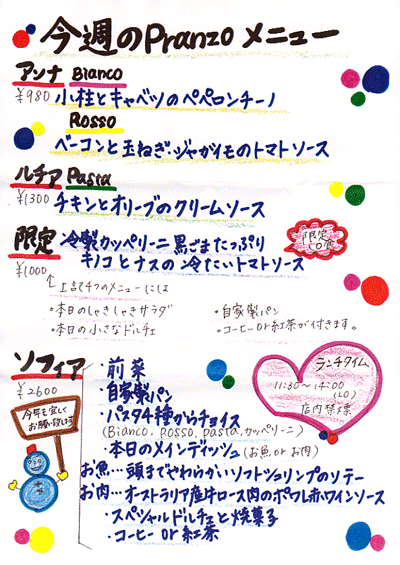 今週のPranzoメニュー
アンナ Bianco
¥980 小柱とキャベツのペペロンチーノ
Rosso
ベーコンと玉ねぎ・ジャガイモのトマトソース
ルチア Pasta
¥1300 チキンとオリーブのクリームソース
限定 冷製カッペリーニ 黒ごまたっぷり
¥1000 キノコとナスの冷たいトマトソース
限定
10食
↑上記4つのメニューには
・本日のしゃきしゃきサラダ
・自家製パン
・本日の小さなドルチェ
・コーヒーor紅茶が付きます。
ソフィア
¥2600
・前菜
・自家製パン
・パスタ4種からチョイス
(Bianco, Rosso, Pasta, カッペリーニ)
・本日のメインディッシュ(お魚 or お肉)
お魚…頭までやわらかいソフトシュリンプのソテー
お肉…オーストラリア産牛ロース肉のポワレ赤ワインソース
・スペシャルドルチェと焼菓子
・コーヒー or 紅茶
ランチタイム
11:30〜14:00
(LO)
店内禁煙
今年も宜しく
お願い致します